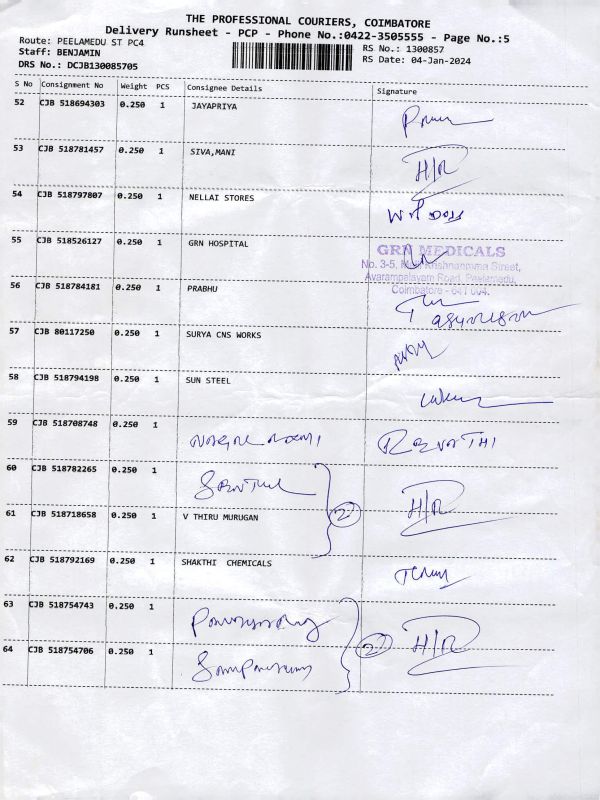 THE PROFESSIONAL COURIERS, COIMBATORE
Delivery Runsheet - PCP - Phone No.:0422-3505555 - Page No.:5
Route: PEELAMEDU ST PC4
RS No.: 1300857
Staff: BENJAMIN
RS Date: 04-Jan-2024
DRS No.: DCJB130085705
S No Consignment No Weight PCS Consignee Details Signature
52 CJB 518694303 0.250 1 JAYAPRIYA
53 CJB 518781457 0.250 1 SIVA,MANI H/R
54 CJB 518797807 0.250 1 NELLAI STORES
55 CJB 518526127 0.250 1 GRN HOSPITAL
GRN MEDICALS
No. 3-5, Krishnamma Street,
Avarampalayam Road, Peelamedu,
Coimbatore - 641 004.
56 CJB 518784181 0.250 1 PRABHU
57 CJB 80117250 0.250 1 SURYA CNS WORKS
58 CJB 518794198 0.250 1 SUN STEEL
59 CJB 518708748 0.250 1 REVATHI
60 CJB 518782265 0.250 1
2 H/R
61 CJB 518718658 0.250 1 V THIRU MURUGAN
62 CJB 518792169 0.250 1 SHAKTHI CHEMICALS
63 CJB 518754743 0.250 1
2 H/R
64 CJB 518754706 0.250 1